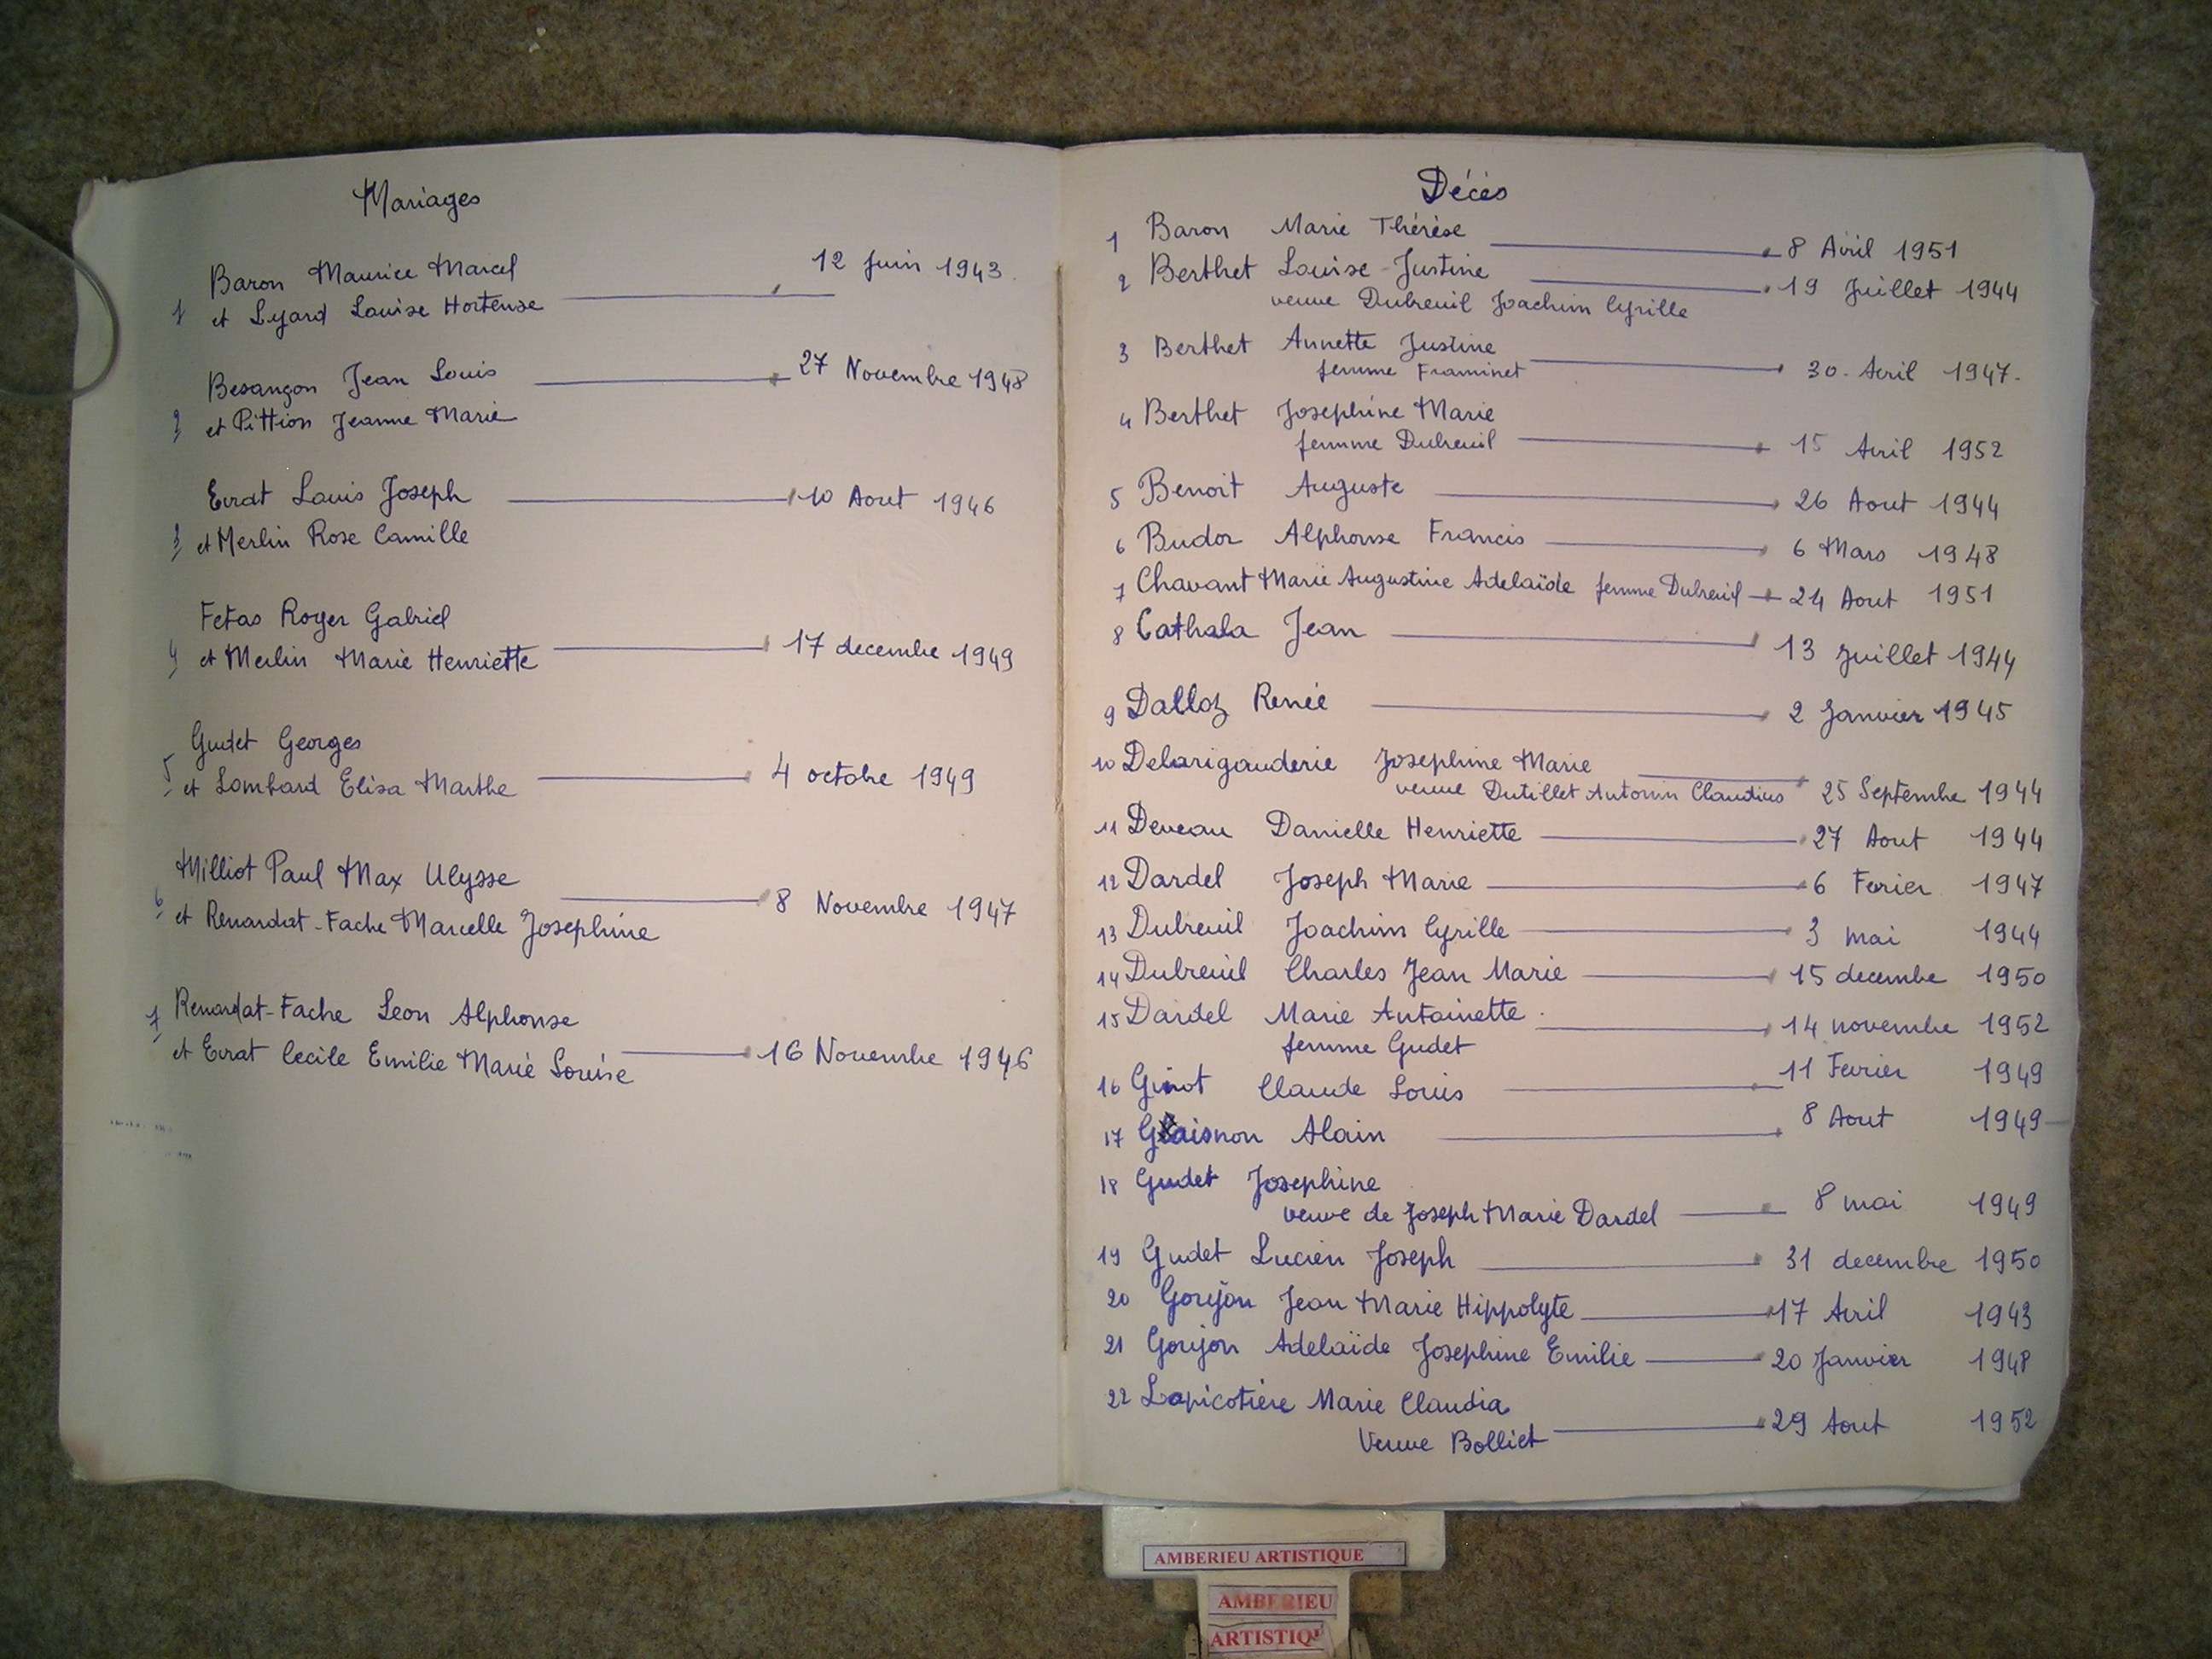 Mariages
Baron Maurice Marcel
12 Juin 1943.
1 et Lyard Louise Hortense
Besançon Jean Louis 27 Novembre 1948
2 et Pittion Jeanne Marie
Evrat Louis Joseph 10 Aout 1946
3 et Merlin Rose Camille
Fetas Roger Gabriel
4 et Merlin Marie Henriette 17 decembre 1949
Gudet Georges
5 et Lombard Elisa Marthe 4 octobre 1949
Milliot Paul Max Ulysse
8 Novembre 1947
6 et Renardat-Fache Marcelle Josephine
7 Renardat-Fache Leon Alphonse
et Evrat Cecile Emilie Marie Louise 16 Novembre 1946
Décès
1 Baron Marie Thérèse 8 Avril 1951
2 Berthet Louise-Justine 19 Juillet 1944
veuve Dubreuil Joachim Cyrille
3 Berthet Annette Justine
femme Framinet 30. Avril 1947.
4 Berthet Josephine Marie
femme Dubreuil 15 Avril 1952
5 Benoit Auguste 26 Aout 1944
6 Budor Alphonse Francis 6 Mars 1948
7 Chavant Marie Augustine Adelaïde femme Dubreuil 24 Aout 1951
8 Cathala Jean 13 Juillet 1944
9 Dalloz Renée 2 Janvier 1945
10 Delarigauderie Josephine Marie
veuve Dutillet Antonin Claudius 25 Septembre 1944
11 Deveau Danielle Henriette 27 Aout 1944
12 Dardel Joseph Marie 6 Fevrier 1947
13 Dubreuil Joachim Cyrille 3 mai 1944
14 Dubreuil Charles Jean Marie 15 decembre 1950
15 Dardel Marie Antoinette. 14 novembre 1952
femme Gudet
16 Ginot Claude Louis 11 Fevrier 1949
17 Gaisnon Alain 8 Aout 1949
18 Gudet Josephine
veuve de Joseph Marie Dardel 8 mai 1949
19 Gudet Lucien Joseph 31 decembre 1950
20 Goujon Jean Marie Hippolyte 17 Avril 1943
21 Goujon Adelaïde Josephine Emilie 20 Janvier 1948
22 Lapicotière Marie Claudia
Veuve Bolliet 29 Aout 1952
AMBERIEU ARTISTIQUE
AMBERIEU
ARTISTIQU